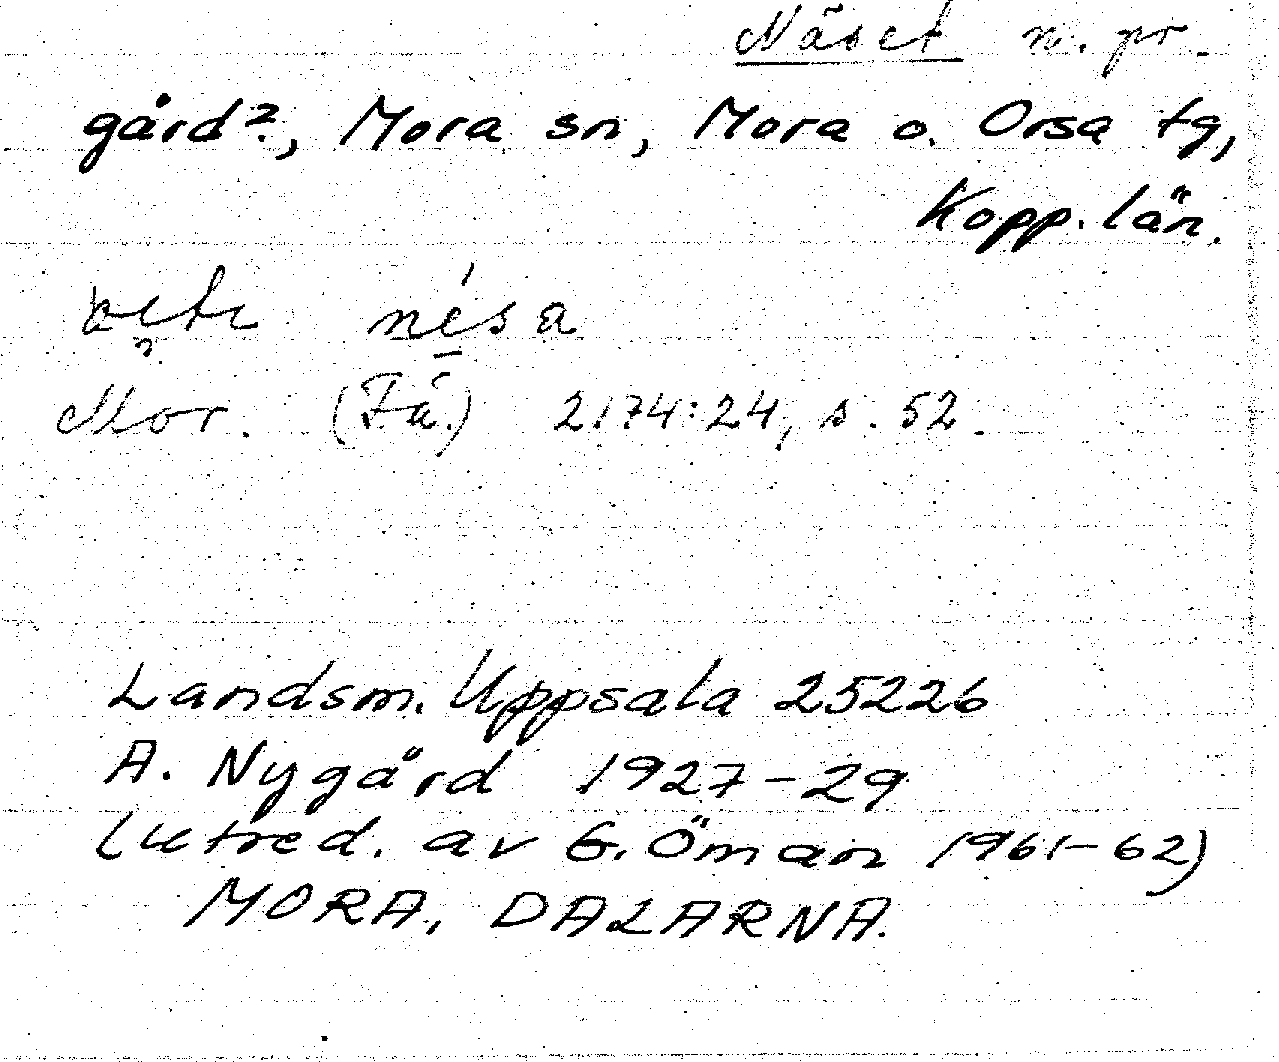 Näset n. pr.
gård?, Mora sn, Mora o. Orsa tg,
Kopp. län.
nésa
Mor. (Få.) 2174:24, s. 52.
Landsm. Uppsala 25226
A. Nygård 1927-29
(utred. av G. Öman 1961-62)
MORA, DALARNA.